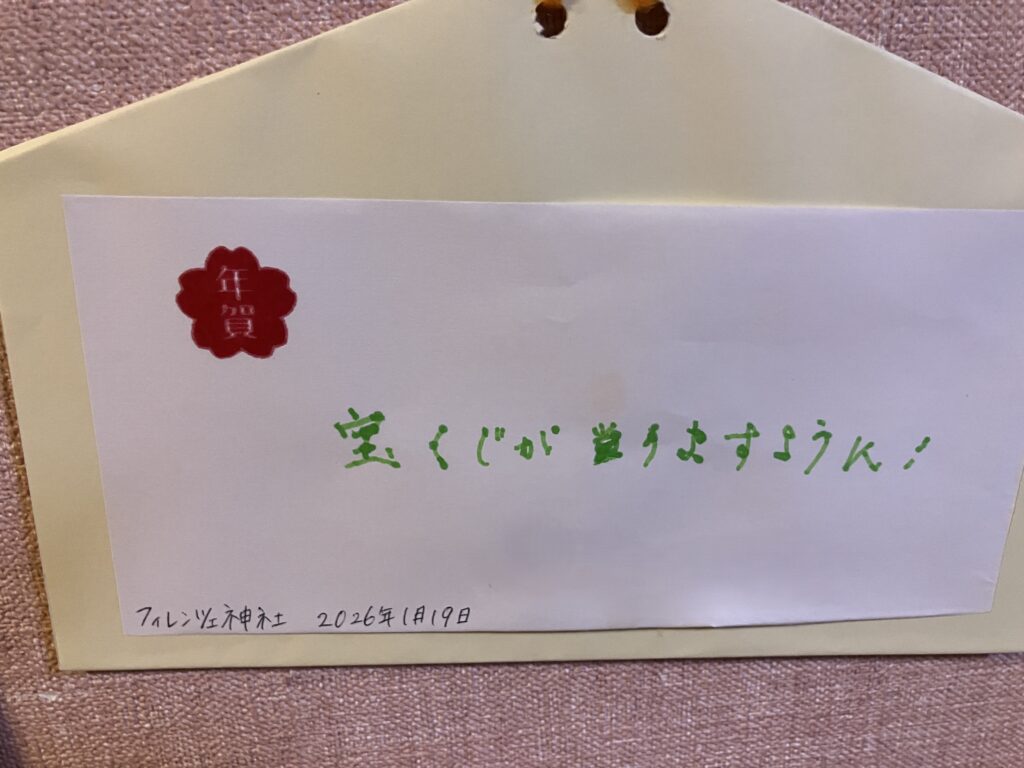 年賀
宝くじが当りますように!
フィレンツェ神社 2026年1月19日